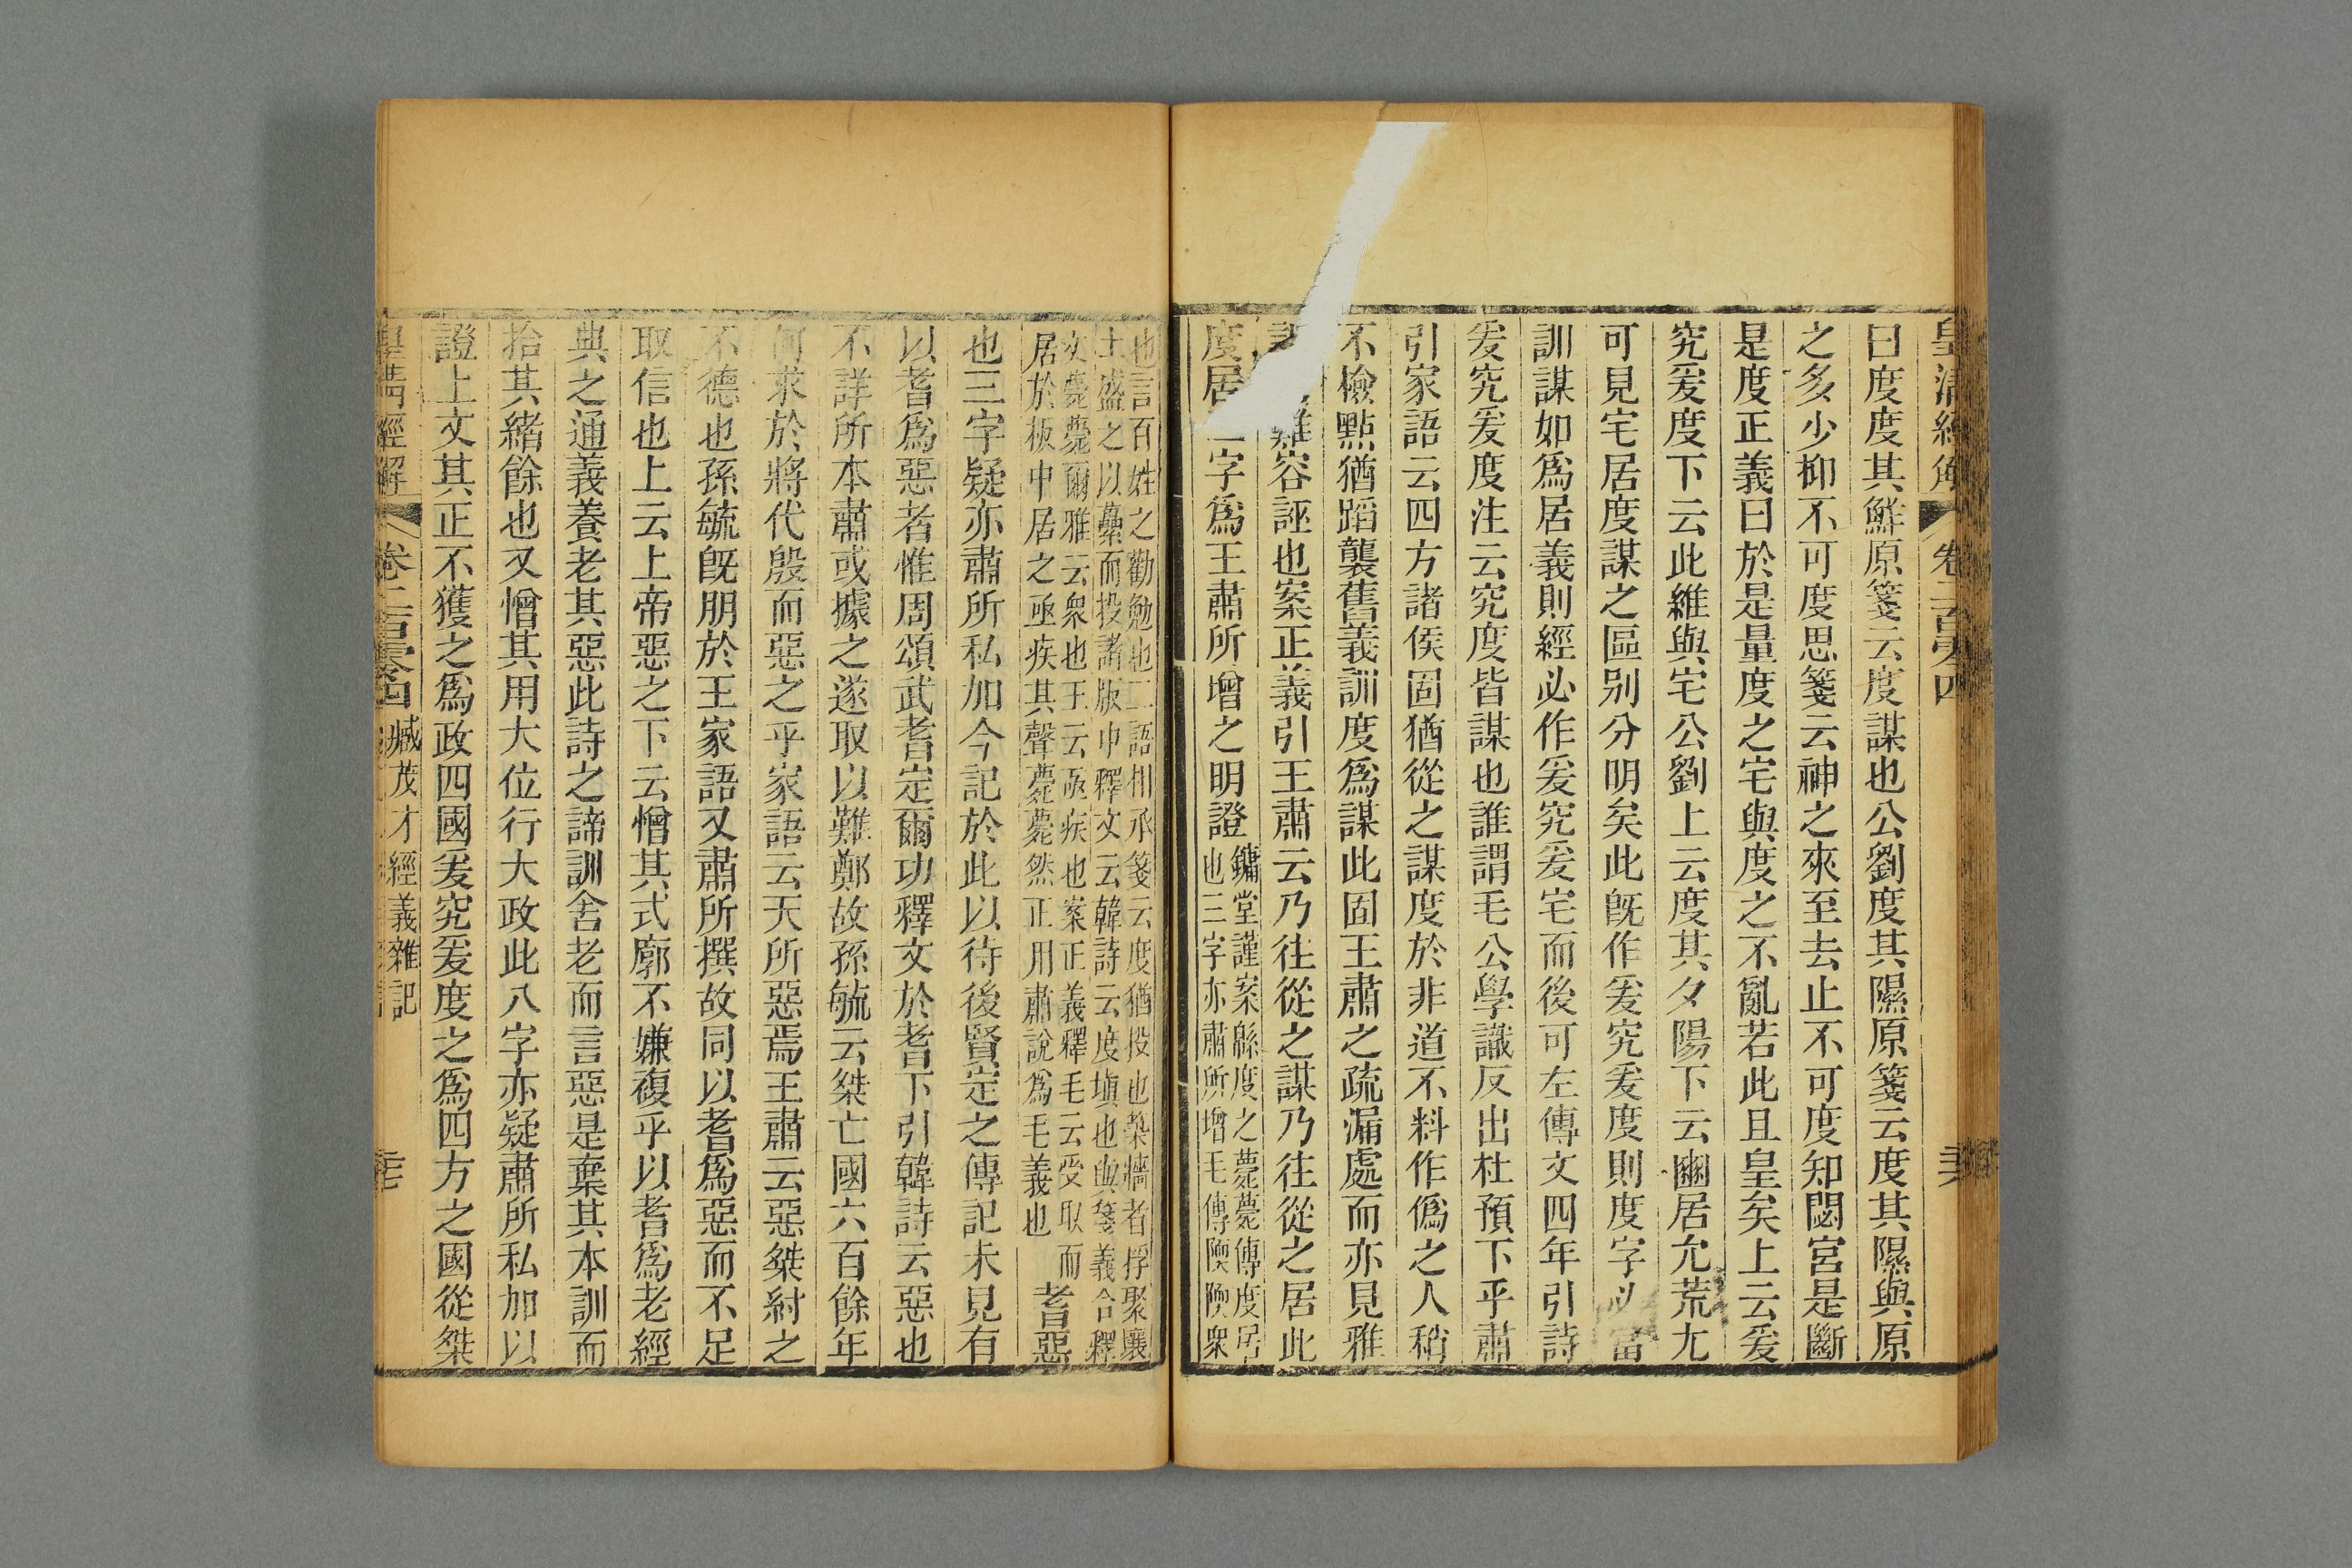 皇清經解 卷二百零四
曰度度其鮮原箋云度謀也公劉度其隰原箋云度其隰與原
之多少抑不可度思箋云神之來至去止不可度知閟宮是斷
是度正義曰於是量度之宅與度之不亂若此且皇矣上云爰
究爰度下云此維與宅公劉上云度其夕陽下云豳居允荒尤
可見宅居度謀之區别分明矣此旣作爰究爰度則度字必當
訓謀如爲居義則經必作爰究爰宅而後可左傳文四年引詩
爰究爰度注云究度皆謀也誰謂毛公學識反出杜預下乎肅
引家語云四方諸侯固猶從之謀度於非道不料作僞之人稍
不檢點猶蹈襲舊義訓度爲謀此固王肅之疏漏處而亦見雅
難容誣也案正義引王肅云乃往從之謀乃往從之居此
度居字爲王肅所增之明證
鏞堂謹案緜度之薨薨傳度居
也三字亦肅所增毛傳陾陾衆
也言百姓之勸勉也二語相承箋云度猶投也築牆者捊聚壤
土盛之以虆而投諸版中釋文云韓詩云度塡也與箋義合釋
文薨薨爾雅云衆也王云亟疾也案正義釋毛云受取而
居於板中居之亟疾其聲薨薨然正用肅說爲毛義也
耆惡
也三字疑亦肅所私加今記於此以待後賢定之傳記未見有
以耆爲惡者惟周頌武耆定爾功釋文於耆下引韓詩云惡也
不詳所本肅或據之遂取以難鄭故孫毓云桀亡國六百餘年
何求於將代殷而惡之乎家語云天所惡焉王肅云惡桀紂之
不德也孫毓旣朋於王家語又肅所撰故同以耆爲惡而不足
取信也上云上帝惡之下云憎其式廓不嫌複乎以耆爲老經
典之通義養老其惡此詩之諦訓舍老而言惡是棄其本訓而
拾其緖餘也又憎其用大位行大政此八字亦疑肅所私加以
證上文其正不獲之爲政四國爰究爰度之爲四方之國從桀
皇清經解 卷二百零四 臧茂才經義雜記